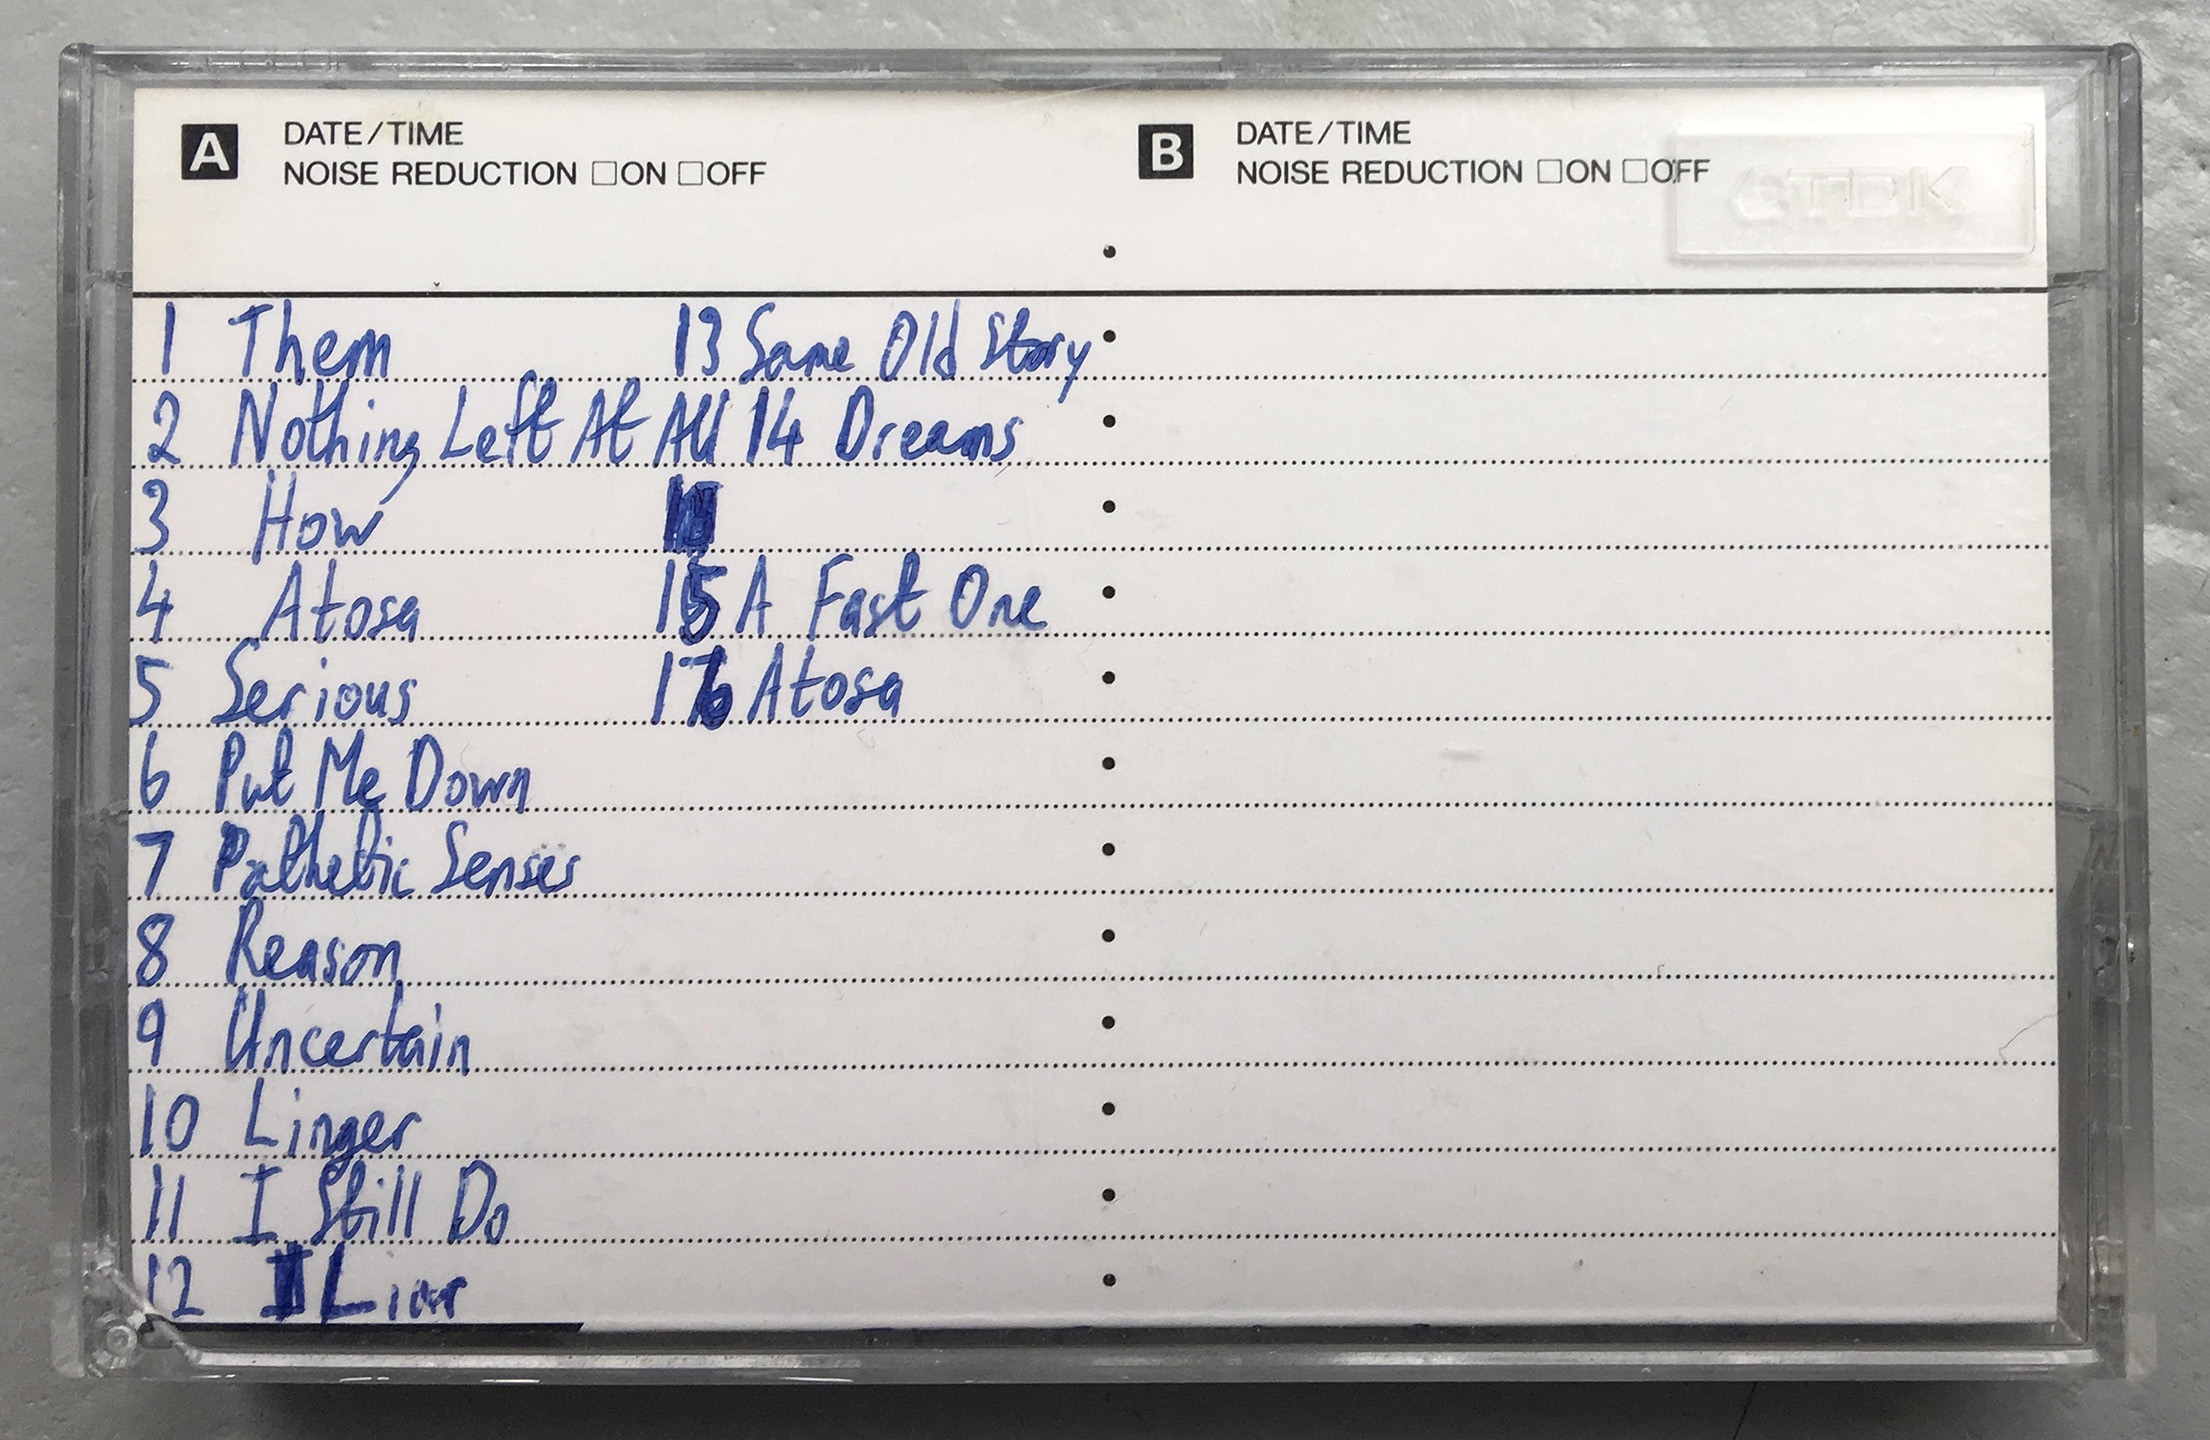 A DATE/TIME
NOISE REDUCTION □ON □OFF
B DATE/TIME
NOISE REDUCTION □ON □OFF
TDK
1 Them
2 Nothing Left At All
3 How
4 Atosa
5 Serious
6 Put Me Down
7 Pathetic Senses
8 Reason
9 Uncertain
10 Linger
11 I Still Do
12 Liar
13 Same Old Story
14 Dreams
15 A Fast One
16 Atosa